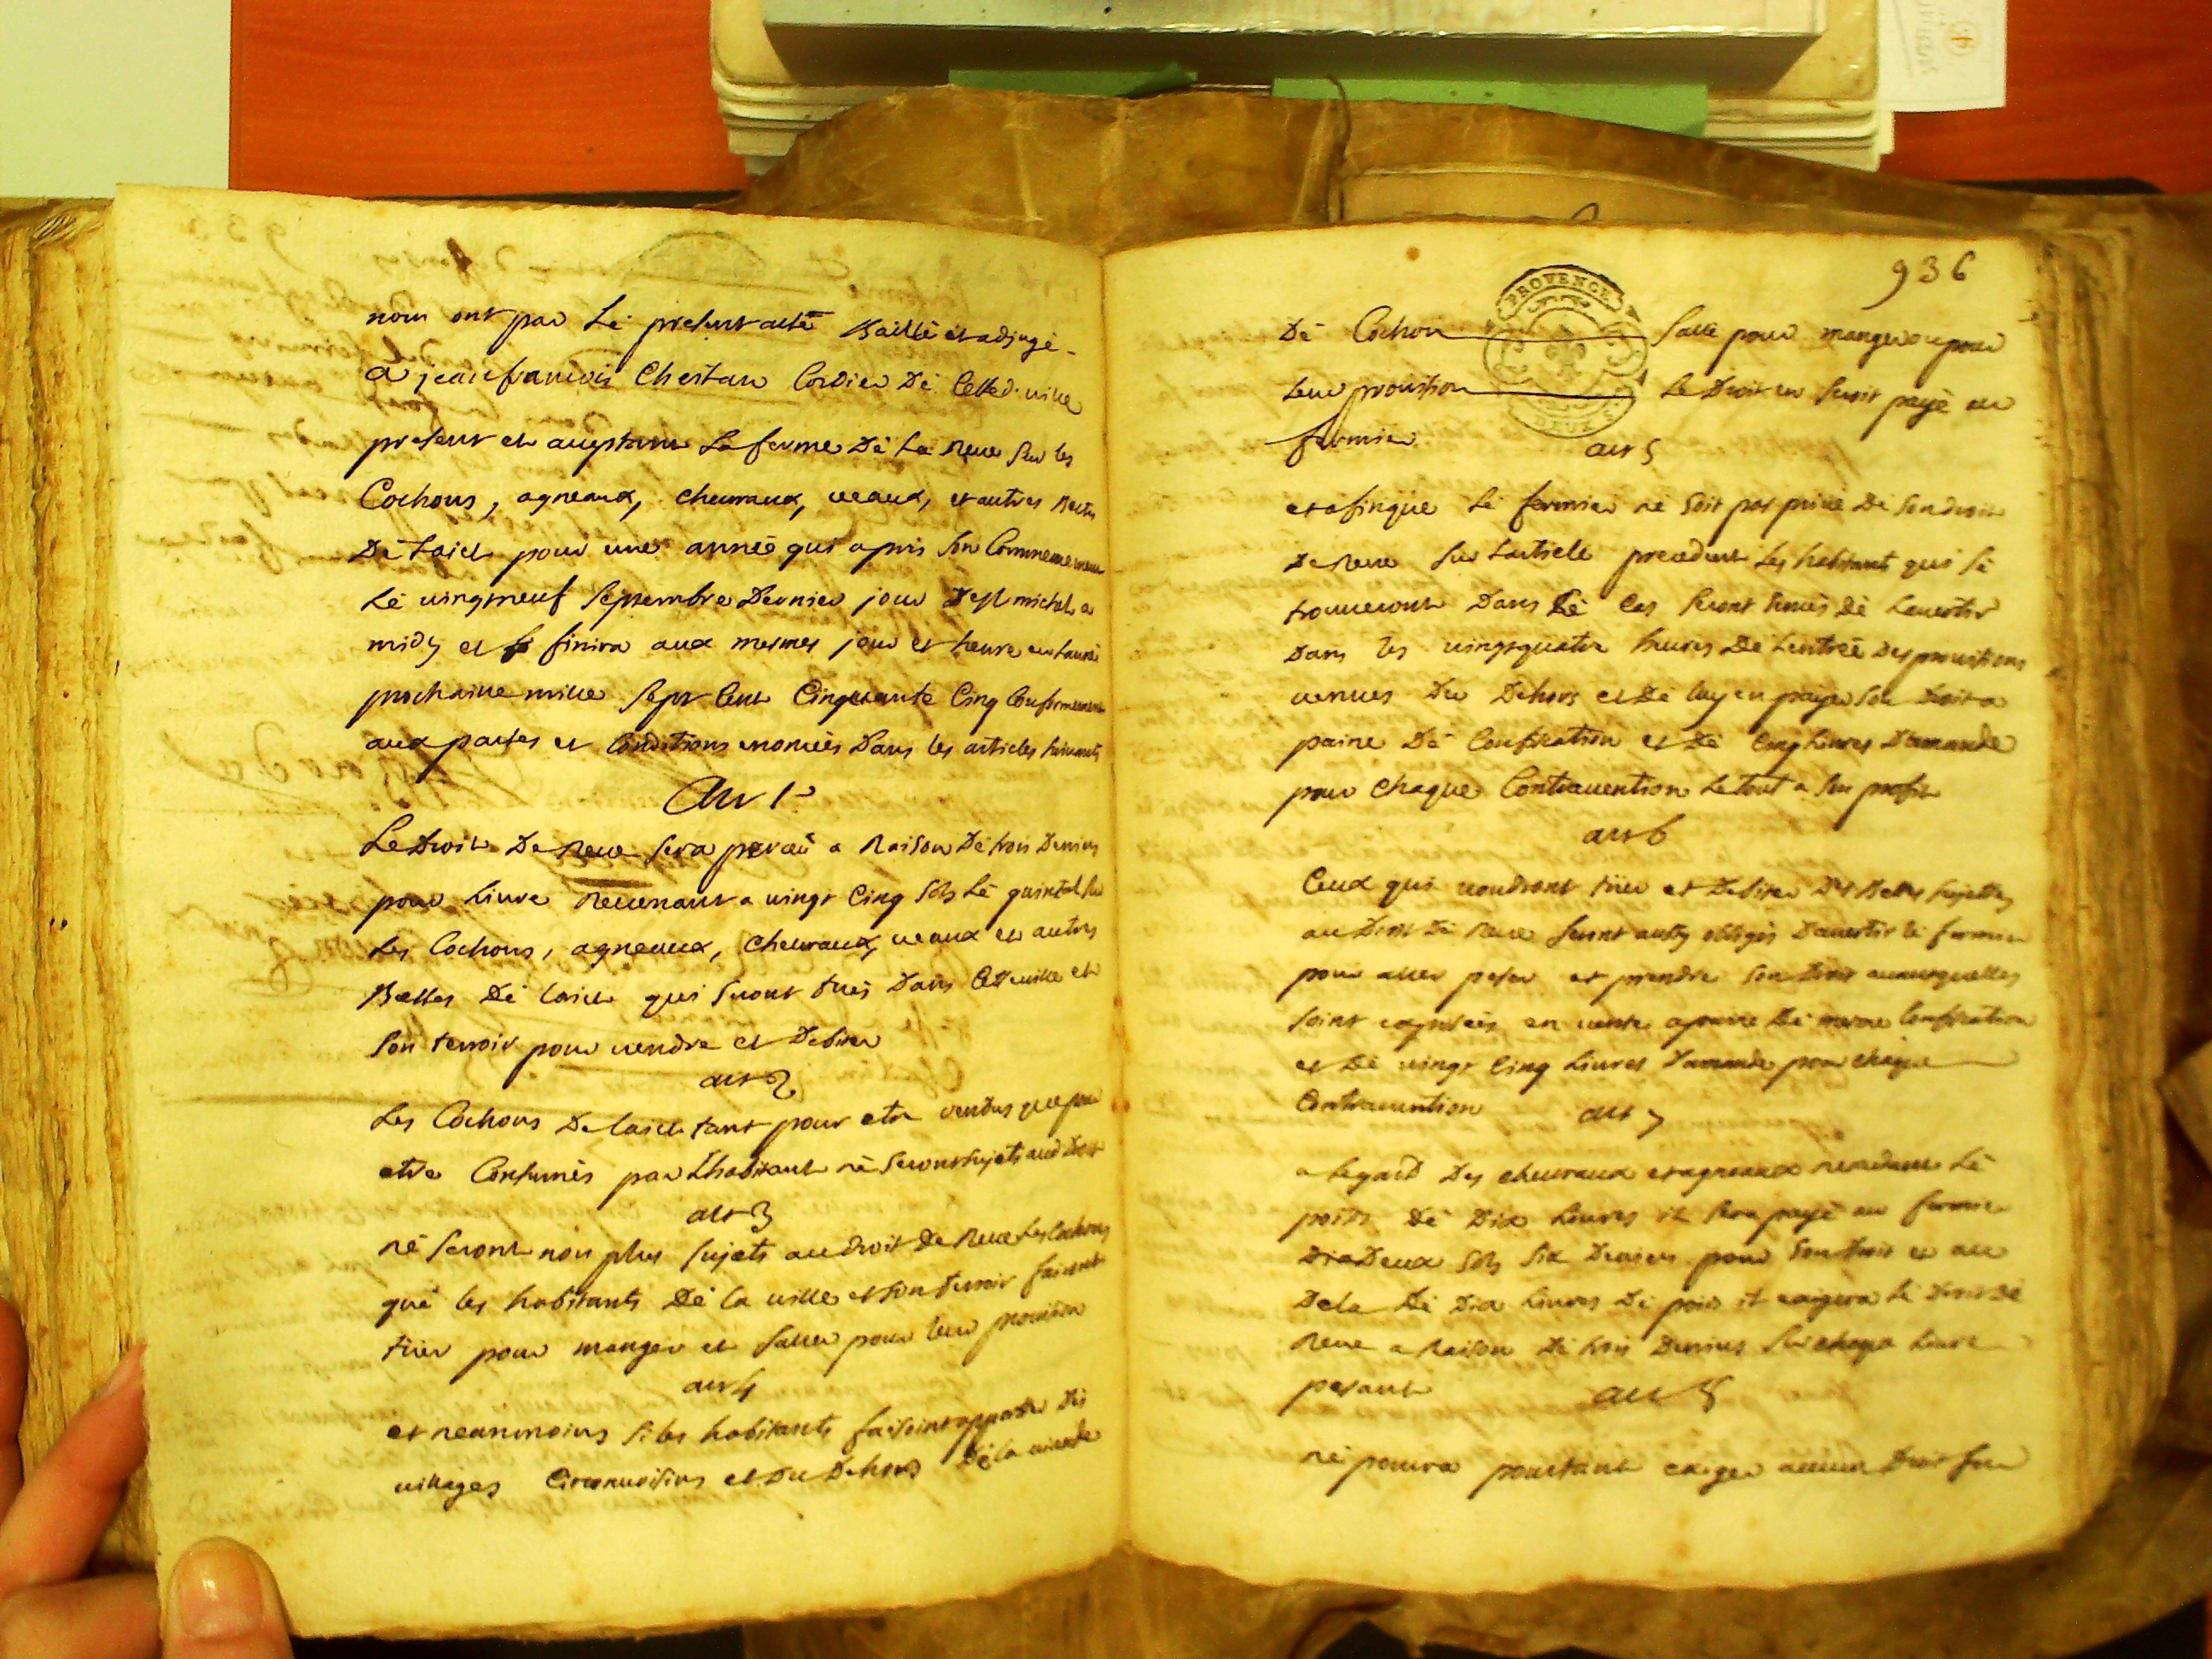 nom ont par le present acte Baillé et adjugé
a jean francois Cheilan Cordier de Cetted. ville
present et aceptant la ferme de la Reve sur les
Cochons, agneaux, chevraux, veaux, et autres Bettes
de Laict pour une année qui a pris son Commencement
le vingtneuf septembre dernier jour de st michel a
midy et finira aux mesmes jour et heure en Lannée
prochaine mille sept cent Cinquante Cinq Conformement
aux pactes et Conditions enoncées dans les articles suivants
Art 1er
Le droit de Reve sera perceu a Raison de trois deniers
pour Livre Revenant a vingt Cinq sols le quintal sur
les Cochons, agneaux, Chevraux, veaux et autres
Bettes de laict qui seront tués dans Cette ville et
son terroir pour vendre et debiter
art 2
Les Cochons de laict tant pour etre vendus que pour
etre Consumés par Lhabitant ne seront sujets aud droit
art 3
ne seront non plus sujets au droit de Reve Les Cochons
que les habitants de la ville et son terroir fairont
tuer pour manger et saller pour leur provision
art 4
et neanmoins si les habitants faisoint apporter des
villages Circonvoisins et du dehors de la viande
936
PROVENCE
DEUX S.
de Cochon salle pour manger ou pour
leur provision le droit en seroit payé au
fermier
art 5
et afin que le fermier ne soit pas privé de son droit
de Reve sur Larticle precedent Les habitants qui se
trouveront dans le Cas seront tenus de Lavertir
dans les vingtquatre heures de Lentrée des provisions
venues du dehors et de luy en payer son droit a
paine de Confiscation et de Cinq Livres d'amande
pour chaque Contravention Le tout a son profit
art 6
Ceux qui voudront tuer et debiter des Bettes sujettes
au droit de Reve seront aussy obligés d'avertir le fermier
pour aller peser et prendre son droit avant quelles
soint exposées en vente a paine de meme Confiscation
et de vingt Cinq Livres d'amande pour chaque
Contravention art 7
a legard des chevraux et agneaux nexedant le
poids de dix Livres il sera payé au fermier
deux sols six deniers pour son droit et au
dela de dix Livres de poids il exigera le droit de
Reve a Raison de trois deniers sur chaque Livre
pesant art 8
ne pourra pourtant exiger aucun droit sur